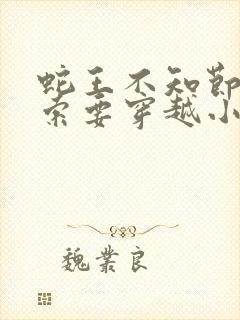 蛇王不知节
索要穿越小
魏業良